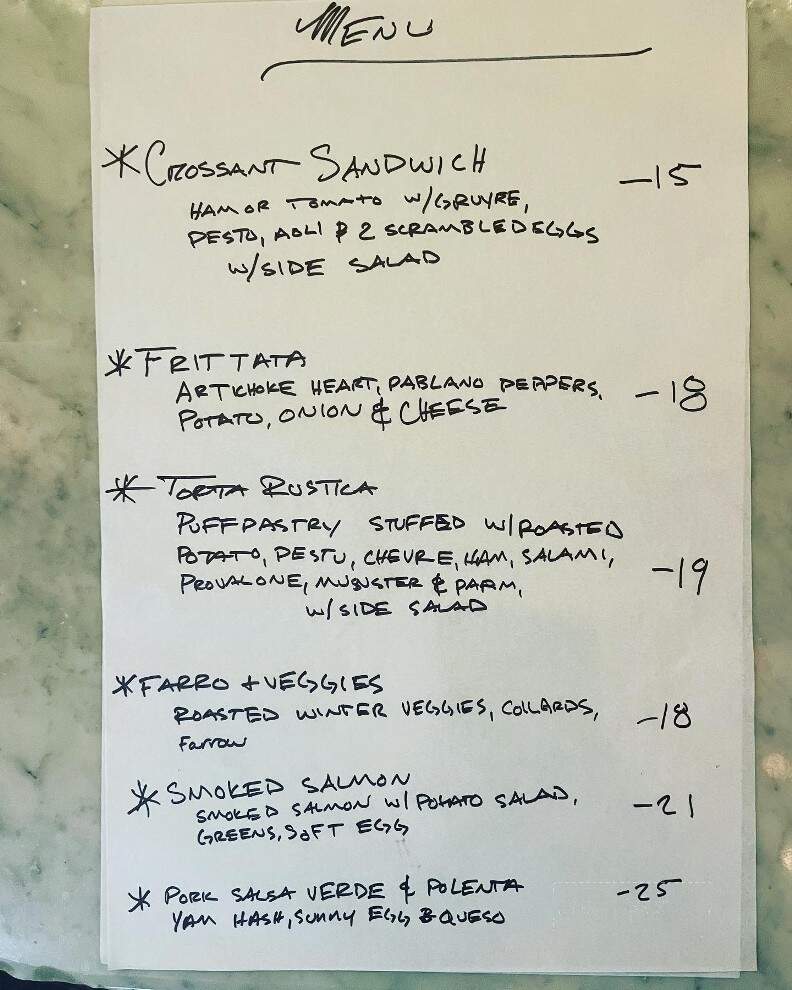 MENU
* CROSSANT SANDWICH -15
HAM OR TOMATO W/GRUYRE,
PESTO, AOLI & 2 SCRAMBLED EGGS
W/SIDE SALAD
* FRITTATA
ARTICHOKE HEART, PABLANO PEPPERS, -18
POTATO, ONION & CHEESE
* TORTA RUSTICA
PUFFPASTRY STUFFED W/ROASTED
POTATO, PESTO, CHEVRE, HAM, SALAMI, -19
PROVALONE, MUNSTER & PARM,
W/SIDE SALAD
* FARRO + VEGGIES
ROASTED WINTER VEGGIES, COLLARDS, -18
Farrow
* SMOKED SALMON
SMOKED SALMON W/ POTATO SALAD, -21
GREENS, SOFT EGG
* PORK SALSA VERDE & POLENTA -25
YAM HASH, SUNNY EGG & QUESO